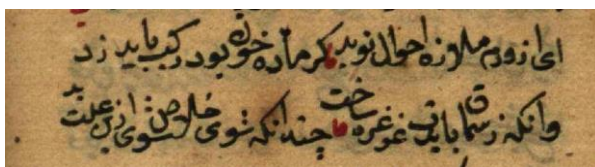 ای از ورم ملازه احوال تو بد کر ماده خون بود رکت باید زد
وانکه ز سماق بایدت غرغره ساخت چندانکه شوی خلاص شوی ازین علت بد